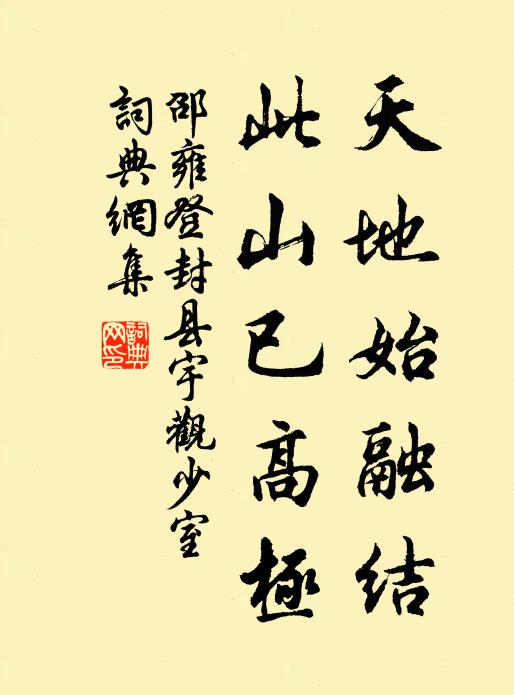 天地始融结
此山已高極
邵雍登封县宇觀少室
詞典網集
詞典網印